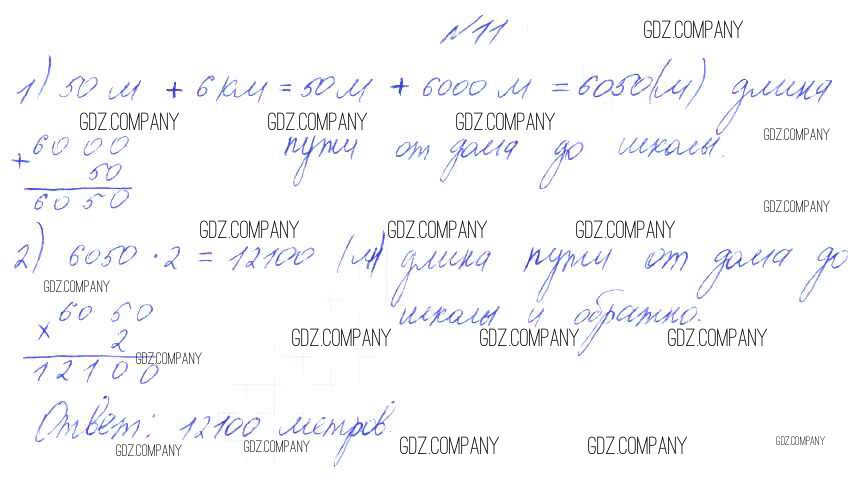 №11 GDZ.COMPANY
1) 50 м + 6 км = 50 м + 6000 м = 6050 (м) длина
GDZ.COMPANY GDZ.COMPANY GDZ.COMPANY GDZ.COMPANY
+ 6000 пути от дома до школы.
50
6050 GDZ.COMPANY
GDZ.COMPANY GDZ.COMPANY GDZ.COMPANY
2) 6050 · 2 = 12100 (м) длина пути от дома до
GDZ.COMPANY
× 6050 школы и обратно.
2 GDZ.COMPANY GDZ.COMPANY GDZ.COMPANY
GDZ.COMPANY
12100
Ответ: 12100 метров.
GDZ.COMPANY GDZ.COMPANY GDZ.COMPANY GDZ.COMPANY GDZ.COMPANY